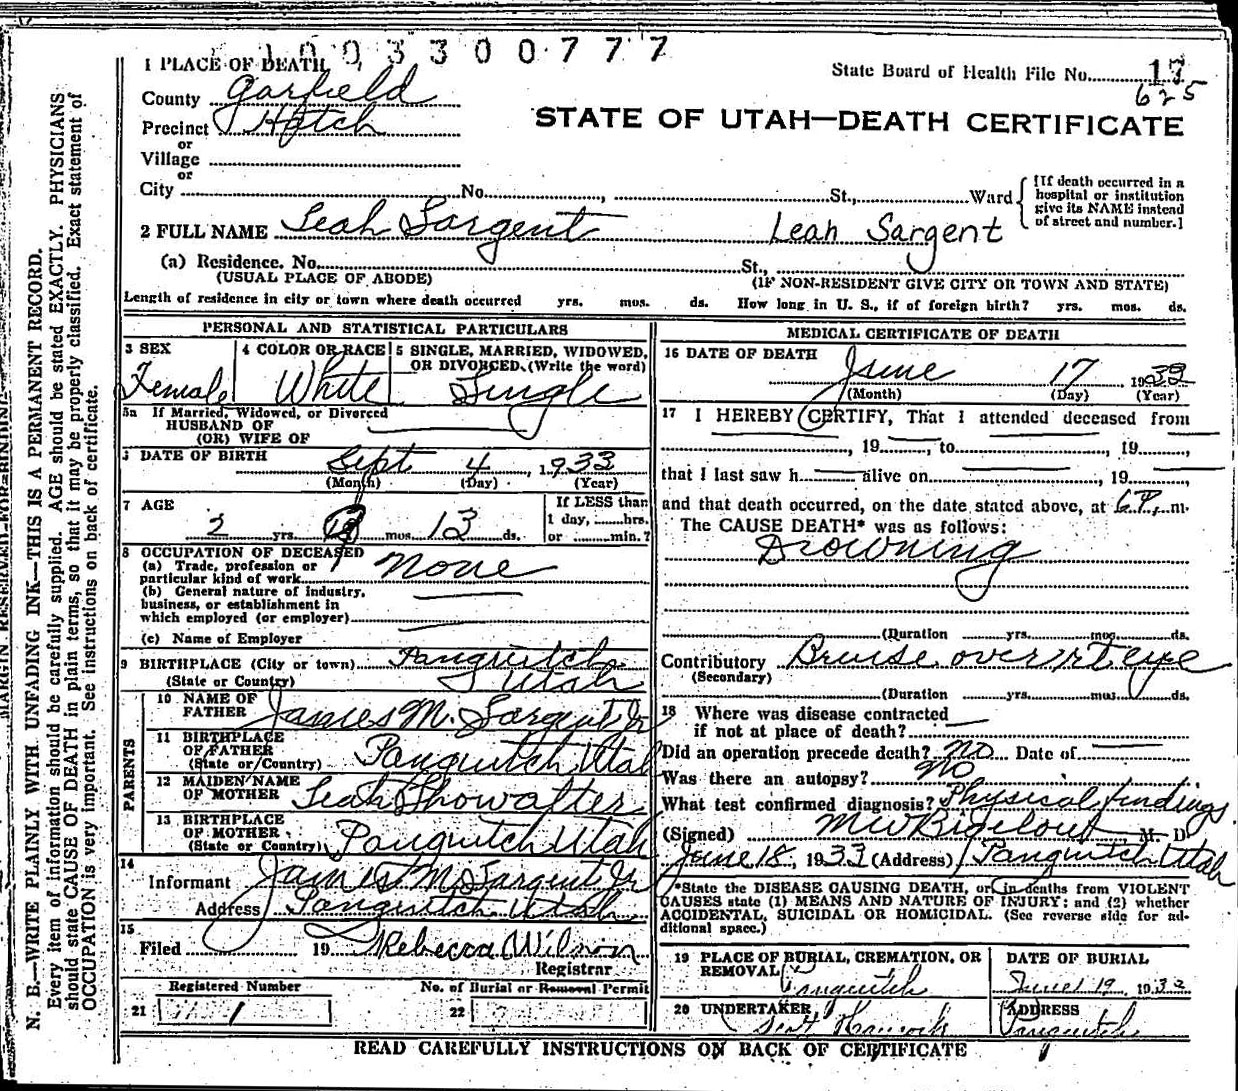 1003300777
1 PLACE OF DEATH
State Board of Health File No. 17
625
County Garfield
STATE OF UTAH—DEATH CERTIFICATE
Precinct Hatch
or
Village
or
City No. , St., Ward
[If death occurred in a hospital or institution give its NAME instead of street and number.]
2 FULL NAME Leah Sargent Leah Sargent
(a) Residence. No. St.,
(USUAL PLACE OF ABODE) (IF NON-RESIDENT GIVE CITY OR TOWN AND STATE)
Length of residence in city or town where death occurred yrs. mos. ds. How long in U. S., if of foreign birth? yrs. mos. ds.
PERSONAL AND STATISTICAL PARTICULARS
3 SEX 4 COLOR OR RACE 5 SINGLE, MARRIED, WIDOWED,
OR DIVORCED. (Write the word)
Female White Single
5a If Married, Widowed, or Divorced
HUSBAND OF
(OR) WIFE OF
DATE OF BIRTH Sept 4, 1933
(Month) (Day) (Year)
7 AGE If LESS than
1 day, hrs.
2 yrs. mos. 13 ds. or min.?
8 OCCUPATION OF DECEASED
(a) Trade, profession or
particular kind of work None
(b) General nature of industry,
business, or establishment in
which employed (or employer)
(c) Name of Employer
9 BIRTHPLACE (City or town) Panguitch
(State or Country) Utah
PARENTS
10 NAME OF
FATHER James M. Sargent Jr
11 BIRTHPLACE
OF FATHER
(State or Country) Panguitch Utah
12 MAIDEN NAME
OF MOTHER Leah Showalter
13 BIRTHPLACE
OF MOTHER
(State or Country) Panguitch Utah
14
Informant James M Sargent Jr
Address Panguitch Utah
15
Filed 19 Rebecca Wilson
Registrar
Registered Number No. of Burial or Removal Permit
21 1 22
MEDICAL CERTIFICATE OF DEATH
16 DATE OF DEATH
June 17, 19
(Month) (Day) (Year)
17 I HEREBY CERTIFY, That I attended deceased from
, 19 , to , 19 ,
that I last saw h alive on , 19 ,
and that death occurred, on the date stated above, at 6 P. m.
The CAUSE DEATH* was as follows:
Drowning
(Duration yrs. mos. ds.
Contributory Bruise over rt eye
(Secondary)
(Duration yrs. mos. ds.
18 Where was disease contracted
if not at place of death?
Did an operation precede death? No Date of
Was there an autopsy? No
What test confirmed diagnosis? Physical findings
(Signed) M W Bigelow M. D
June 18, 1933 (Address) Panguitch Utah
*State the DISEASE CAUSING DEATH, or in deaths from VIOLENT
CAUSES state (1) MEANS AND NATURE OF INJURY: and (2) whether
ACCIDENTAL, SUICIDAL OR HOMICIDAL. (See reverse side for ad-
ditional space.)
19 PLACE OF BURIAL, CREMATION, OR
REMOVAL
Panguitch
DATE OF BURIAL
June 19 1933
20 UNDERTAKER
Hancock
ADDRESS
Panguitch
READ CAREFULLY INSTRUCTIONS ON BACK OF CERTIFICATE
MARGIN RESERVED FOR BINDING
N. B.—WRITE PLAINLY WITH UNFADING INK—THIS IS A PERMANENT RECORD.
Every item of information should be carefully supplied. AGE should be stated EXACTLY. PHYSICIANS
should state CAUSE OF DEATH in plain terms, so that it may be properly classified. Exact statement of
OCCUPATION is very important. See instructions on back of certificate.